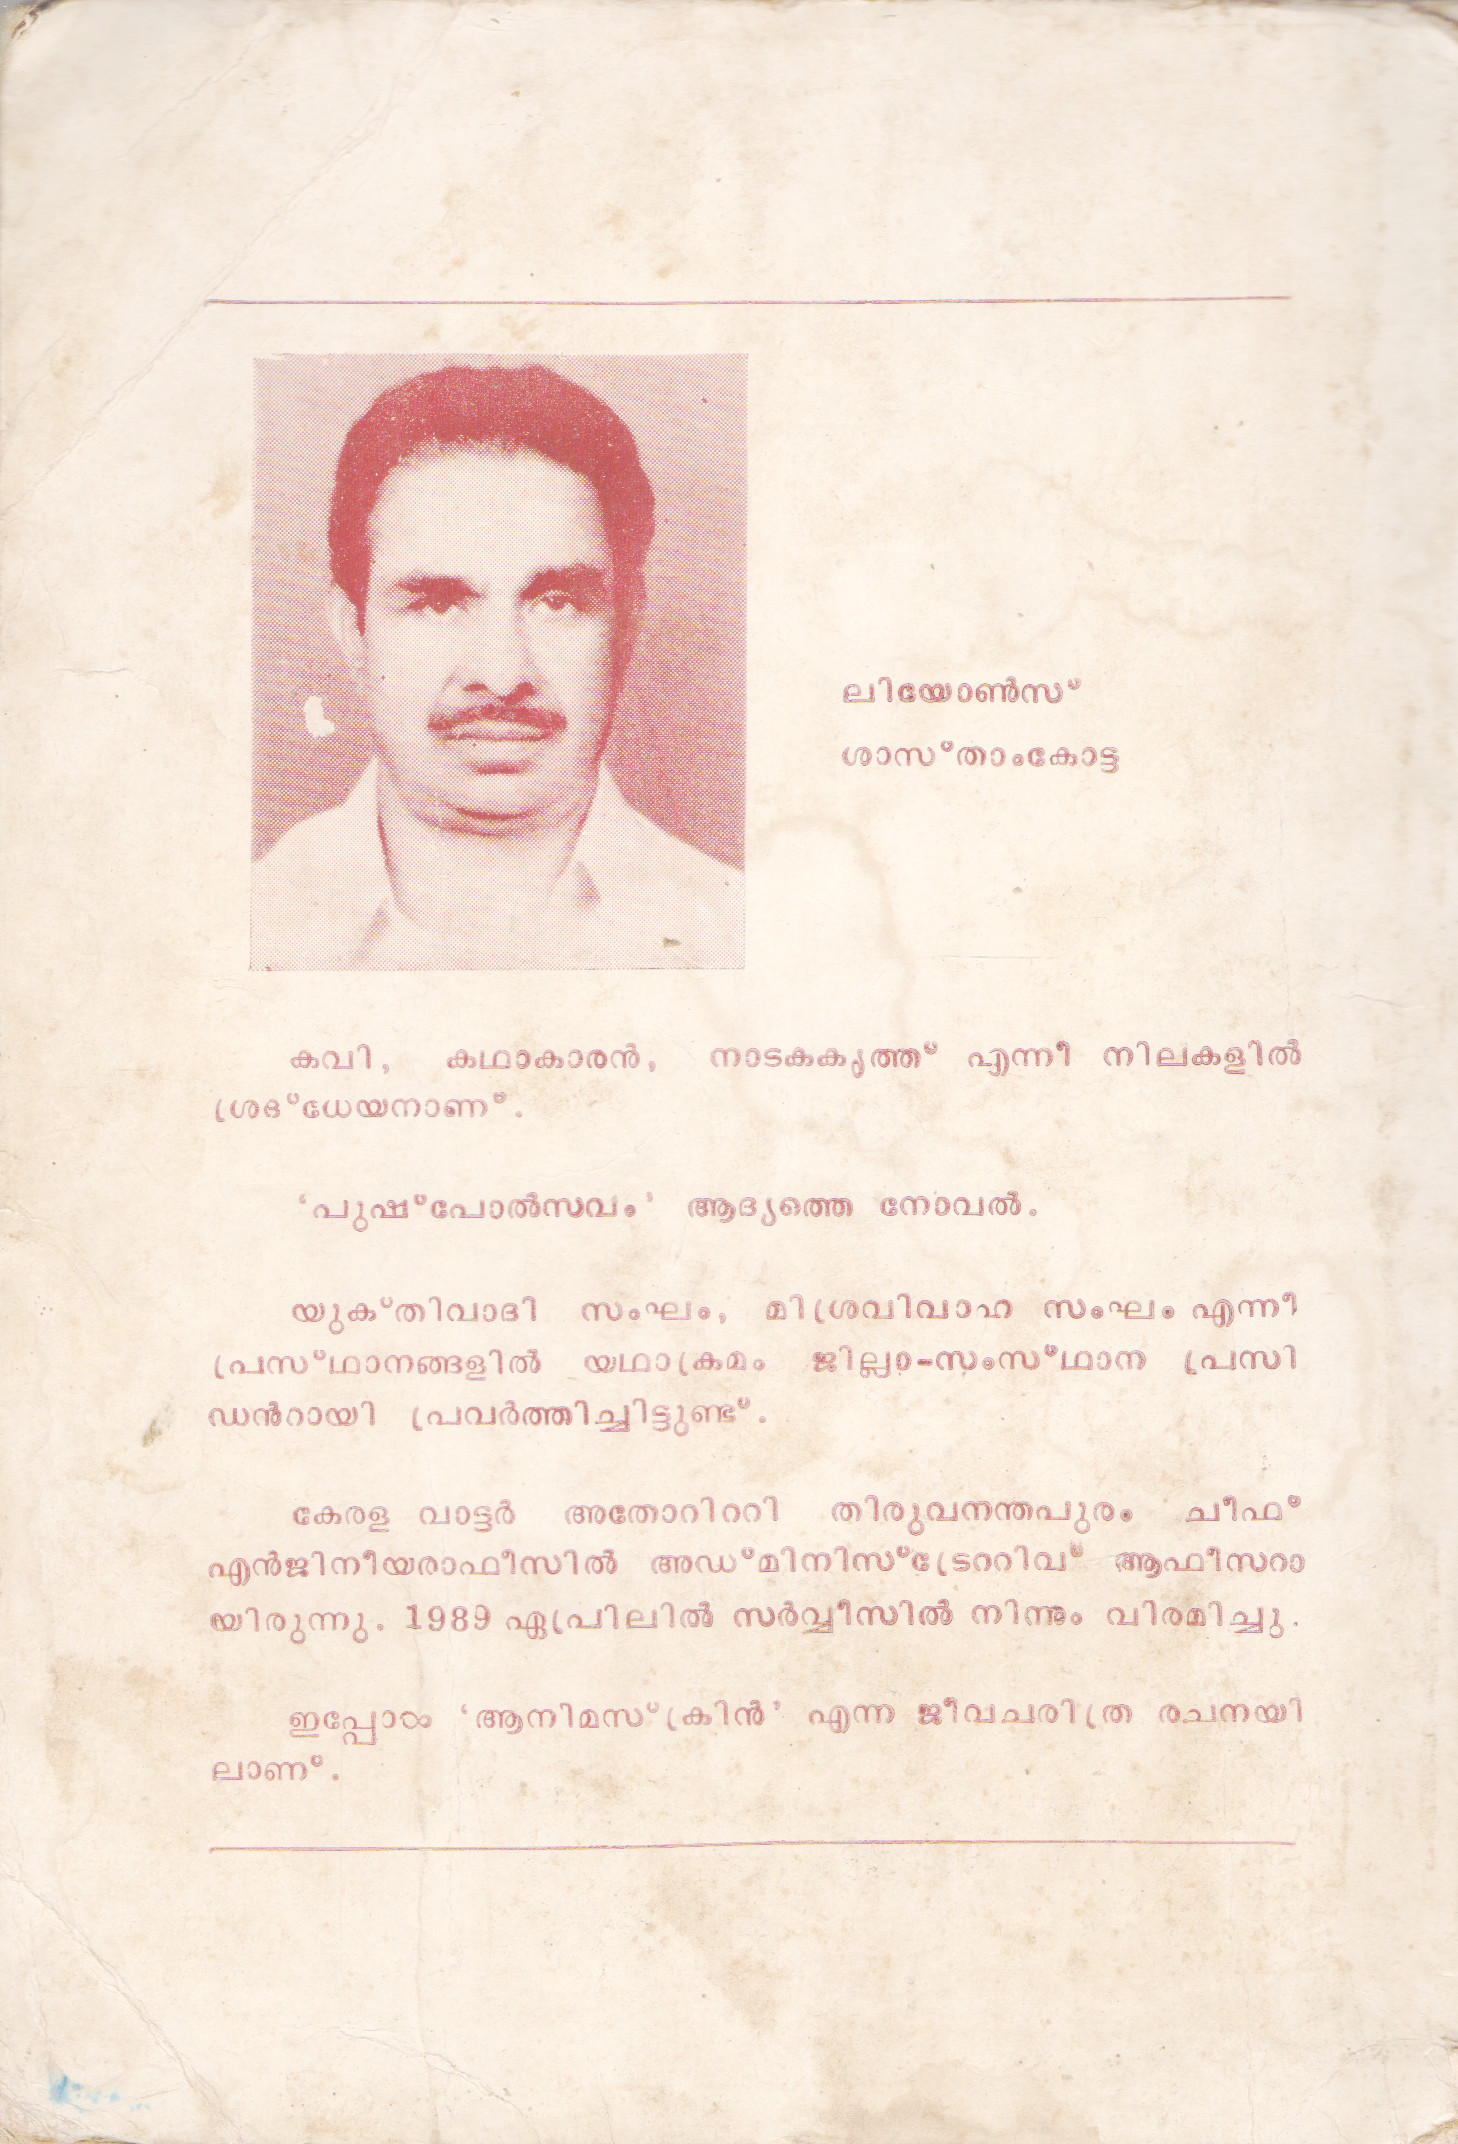 ലിയോൺസ്
ശാസ്താംകോട്ട
കവി, കഥാകാരൻ, നാടകകൃത്ത് എന്നീ നിലകളിൽ
ശ്രദ്ധേയനാണ്.
‘പുഷ്പോൽസവം’ ആദ്യത്തെ നോവൽ.
യുക്തിവാദി സംഘം, മിശ്രവിവാഹ സംഘം എന്നീ
പ്രസ്ഥാനങ്ങളിൽ യഥാക്രമം ജില്ലാ-സംസ്ഥാന പ്രസി
ഡൻറായി പ്രവർത്തിച്ചിട്ടുണ്ട്.
കേരള വാട്ടർ അതോറിററി തിരുവനന്തപുരം ചീഫ്
എൻജിനീയരാഫീസിൽ അഡ്മിനിസ്ട്രേററിവ് ആഫീസറാ
യിരുന്നു. 1989 ഏപ്രിലിൽ സർവ്വീസിൽ നിന്നും വിരമിച്ചു.
ഇപ്പോൾ ‘ആനിമസ്ക്രിൻ’ എന്ന ജീവചരിത്ര രചനയി
ലാണ്.